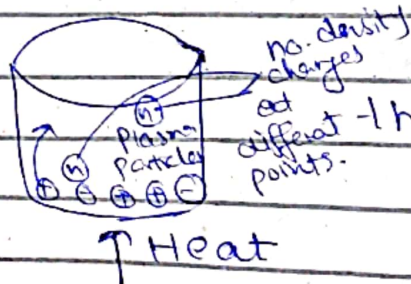 no. density
charges
at
different - 1 h
points.
n+
Plasma
particles
n
+ - + + -
↑ Heat